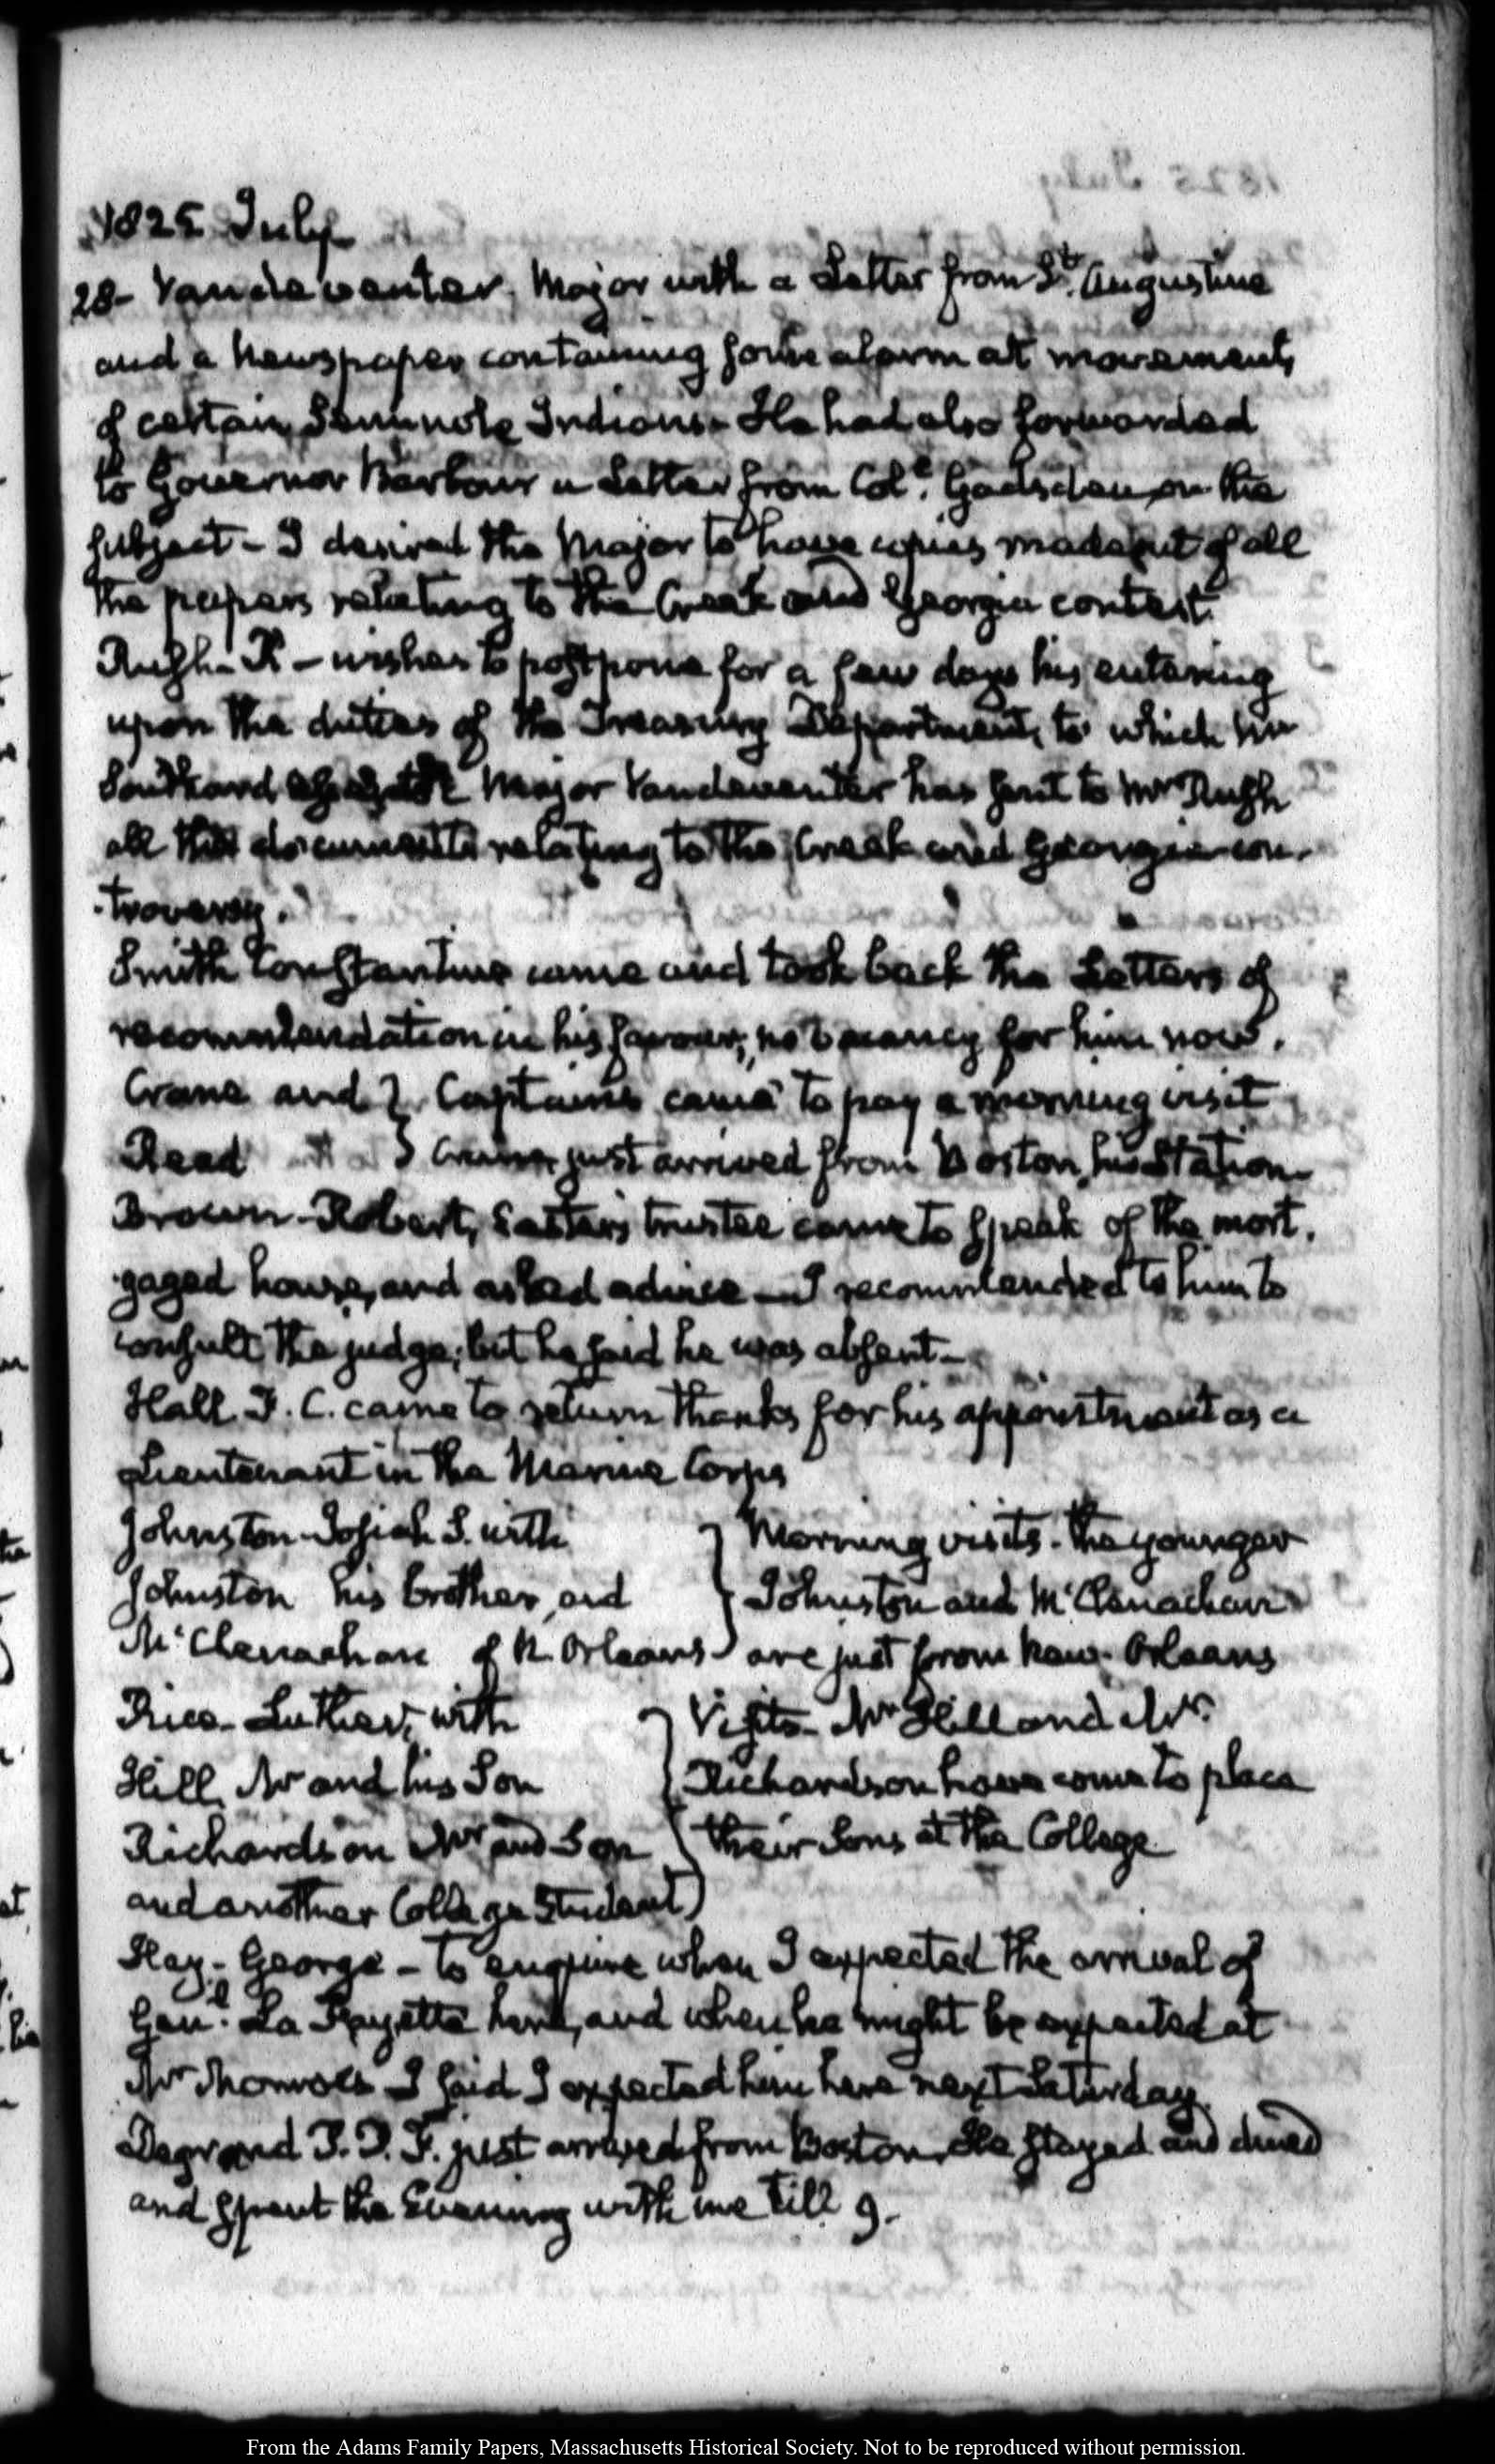 1825 July
28- Vandeventer, Major with a Letter from St. Augustine
and a Newspaper containing some alarm at movements
of certain Seminole Indians. He had also forwarded
to Governor Barbour a Letter from Coll. Gadsden on the
subject - I desired the Major to have copies made out of all
the papers relating to the Creek and Georgia contest.
Rush. R - wishes to postpone for a few days his entering
upon the duties of the Treasury Department, to which
Southard Major Vandeventer has sent to Mr Rush
all the documents relating to the Creek and Georgia con-
-troversy.
Smith Constantine came and took back the Letters of
recommendation in his favour, no vacancy for him now.
Crane and } Captains came to pay a morning visit
Read } Crane just arrived from Boston, his Station
Brown-Robert, trustee came to speak of the mort-
-gaged house, and asked advice - I recommended to him to
consult the judge; but he said he was absent-
Hall. F. C. came to return thanks for his appointment as a
Lieutenant in the Marine Corps
Johnston-Josiah S. with } Morning visits. the younger
Johnston his brother, and } Johnston and McClanachan
McClenachan of N. Orleans } are just from New-Orleans
Rice-Luther, with } Visits- Mr Hill and Mr.
Hill, Mr and his Son } Richardson have come to place
Richardson Mr and Son } their Sons at the College
and another College Student }
Hay-George - to enquire when I expected the arrival of
Genl. La Fayette here, and when he might be expected at
Mr Monroe's I said I expected him here next Saturday.
Degrand P. P. F. just arrived from Boston. He stayed and dined
and spent the Evening with me till 9.
From the Adams Family Papers, Massachusetts Historical Society. Not to be reproduced without permission.